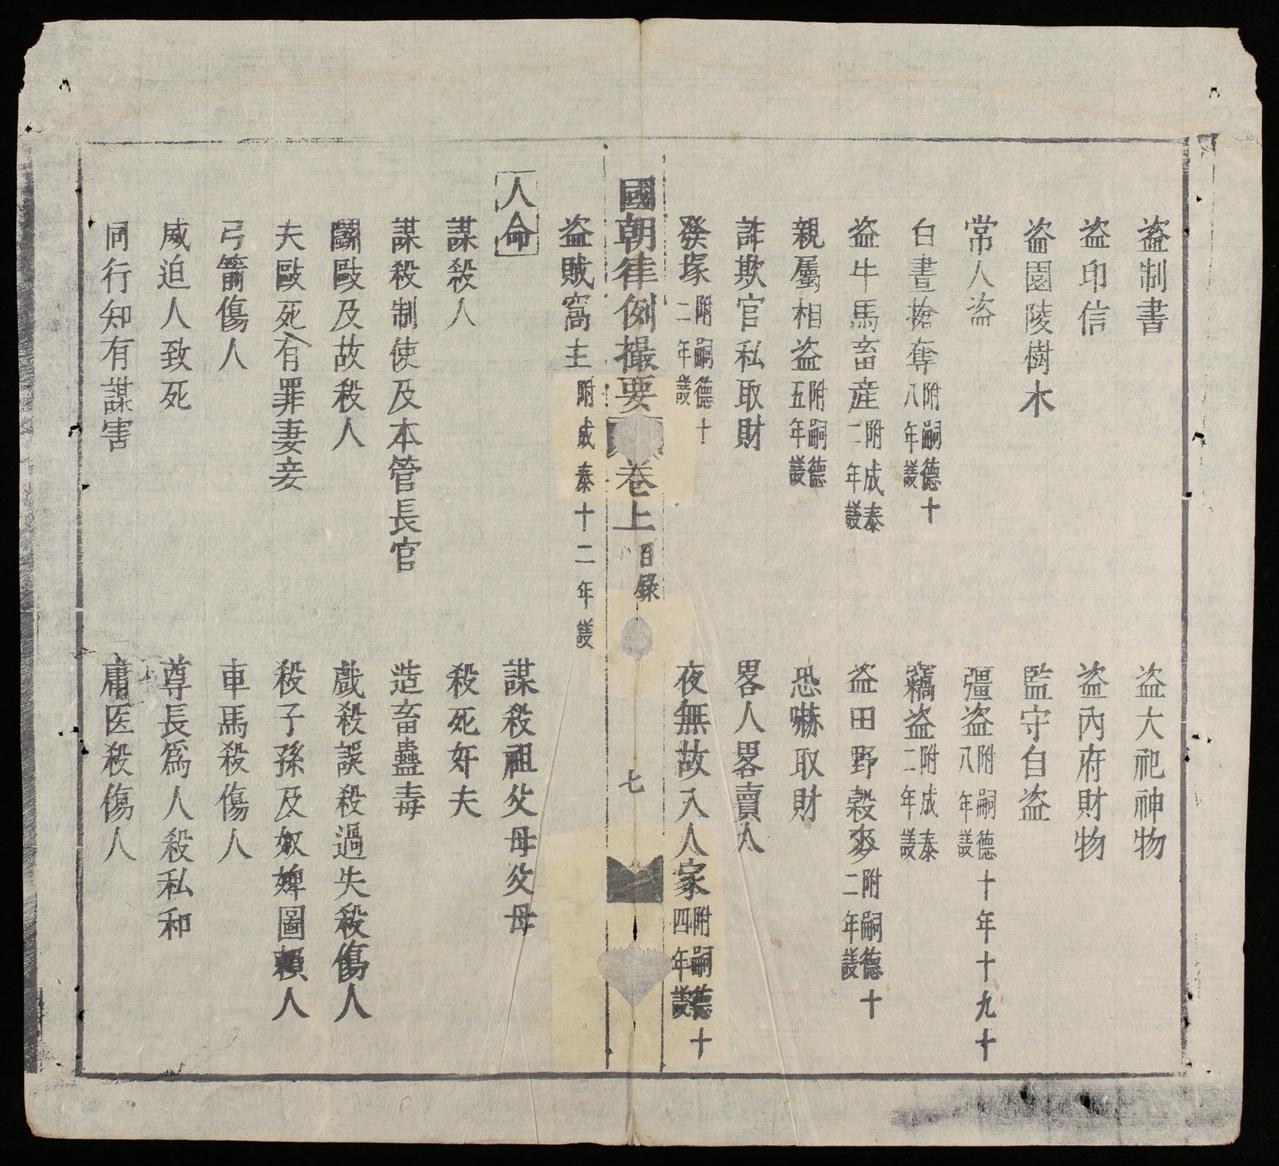 盗制書　盗大祀神物
盗印信　盗內府財物
盗園陵樹木　監守自盗
常人盗　彊盗附嗣德十年十九十八年議
白晝搶奪附嗣德十八年議　竊盗附成泰二年議
盗牛馬畜産附成泰二年議　盗田野穀麥附嗣德十二年議
親屬相盗附嗣德五年議　恐嚇取財
詐欺官私取財　畧人畧賣人
發塚附嗣德十二年議　夜無故入人家附嗣德十四年議
國朝律例撮要　卷上　目錄　七
盗賊窩主附成泰十二年議
人命　謀殺祖父母父母
謀殺人　殺死奸夫
謀殺制使及本管長官　造畜蠱毒
鬬毆及故殺人　戲殺誤殺過失殺傷人
夫毆死有罪妻妾　殺子孫及奴婢圖賴人
弓箭傷人　車馬殺傷人
威迫人致死　尊長爲人殺私和
同行知有謀害　庸医殺傷人